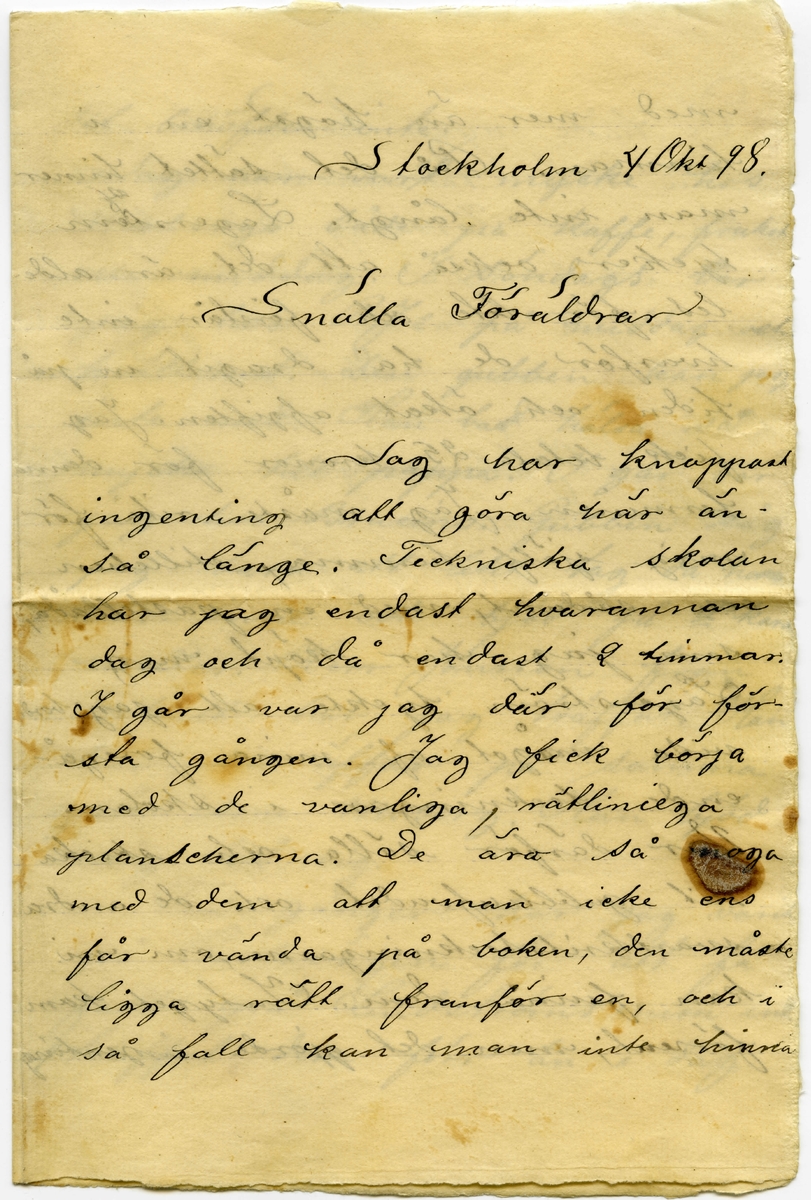 Stockholm 4 Okt 98.
Snälla Föräldrar
Jag har knappast
ingenting att göra här än-
så länge. Teckniska skolan
har jag endast hvarannan
dag och då endast 2 timmar.
I går var jag där för för-
sta gången. Jag fick börja
med de vanliga, rätliniega
planscherna. De äro så noga
med dem att man icke ens
får vända på boken, den måste
ligga rätt franför en, och i
så fall kan man inte hinna